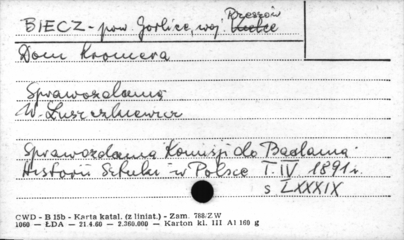 Rzeszów
BIECZ - pow Gorlice, woj. Kielce
Dom Kromera
Sprawozdania
W. Łuszczkiewicz
Sprawozdania Komisji do Badania
Historii Sztuki w Polsce T. IV 1891 r.
s LXXXIX
CWD - B 15b - Karta katal. (z liniat.) - Zam. 788/ZW
1060 — ŁDA — 21.4.60 - 2.360.000 — Karton kl. III A1 160 g